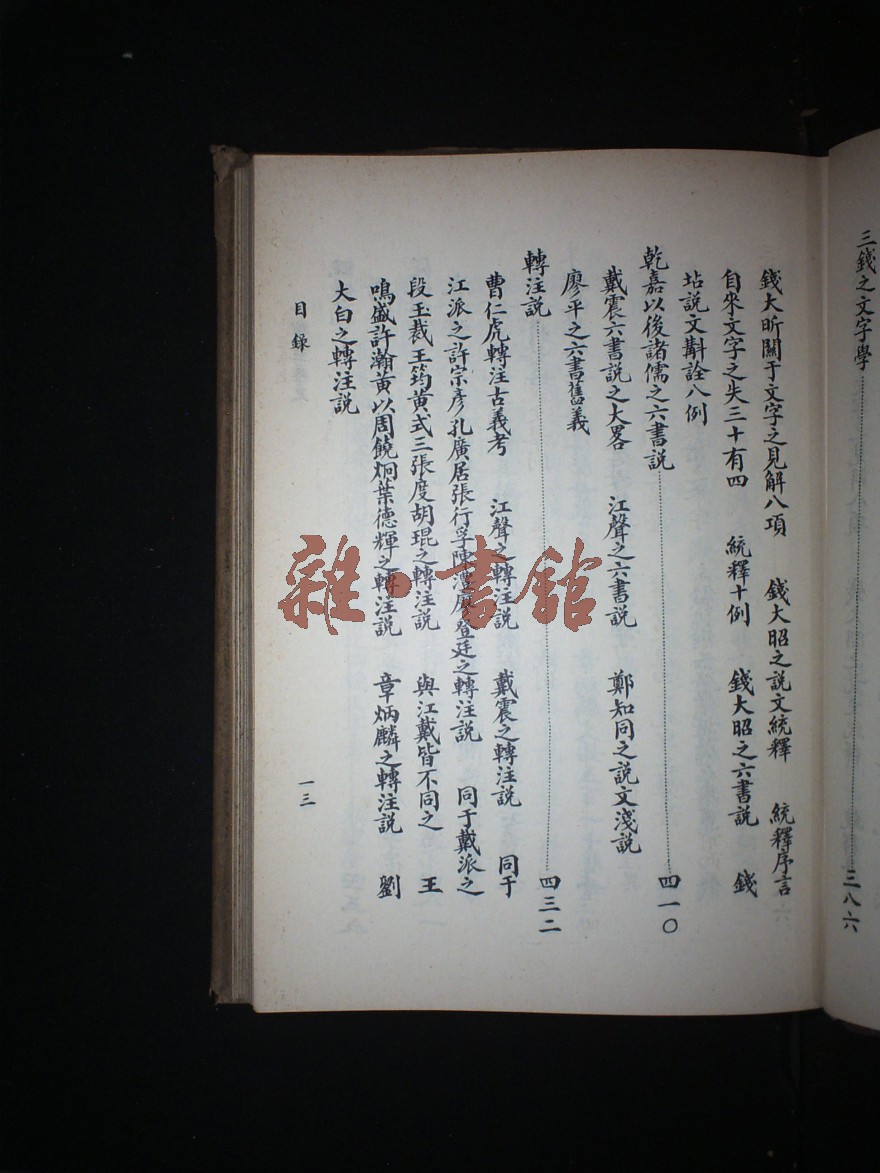 三錢之文字學……三八六
錢大昕關于文字之見解八項　錢大昭之說文統釋　統釋序言
自來文字之失三十有四　統釋十例　錢大昭之六書說　錢
坫說文斠詮八例
乾嘉以後諸儒之六書說……四一〇
戴震六書說之大畧　江聲之六書說　鄭知同之說文淺說
廖平之六書舊義
轉注說……四三二
曹仁虎轉注古義考　江聲之轉注說　戴震之轉注說　同于
江派之許宗彥孔廣居張行孚陳澧龐登廷之轉注說　同于戴派之
段玉裁王筠黃式三張度胡琨之轉注說　與江戴皆不同之　王
鳴盛許瀚黃以周饒炯葉德輝之轉注說　章炳麟之轉注說　劉
大白之轉注說
目錄
一三
雜·書館